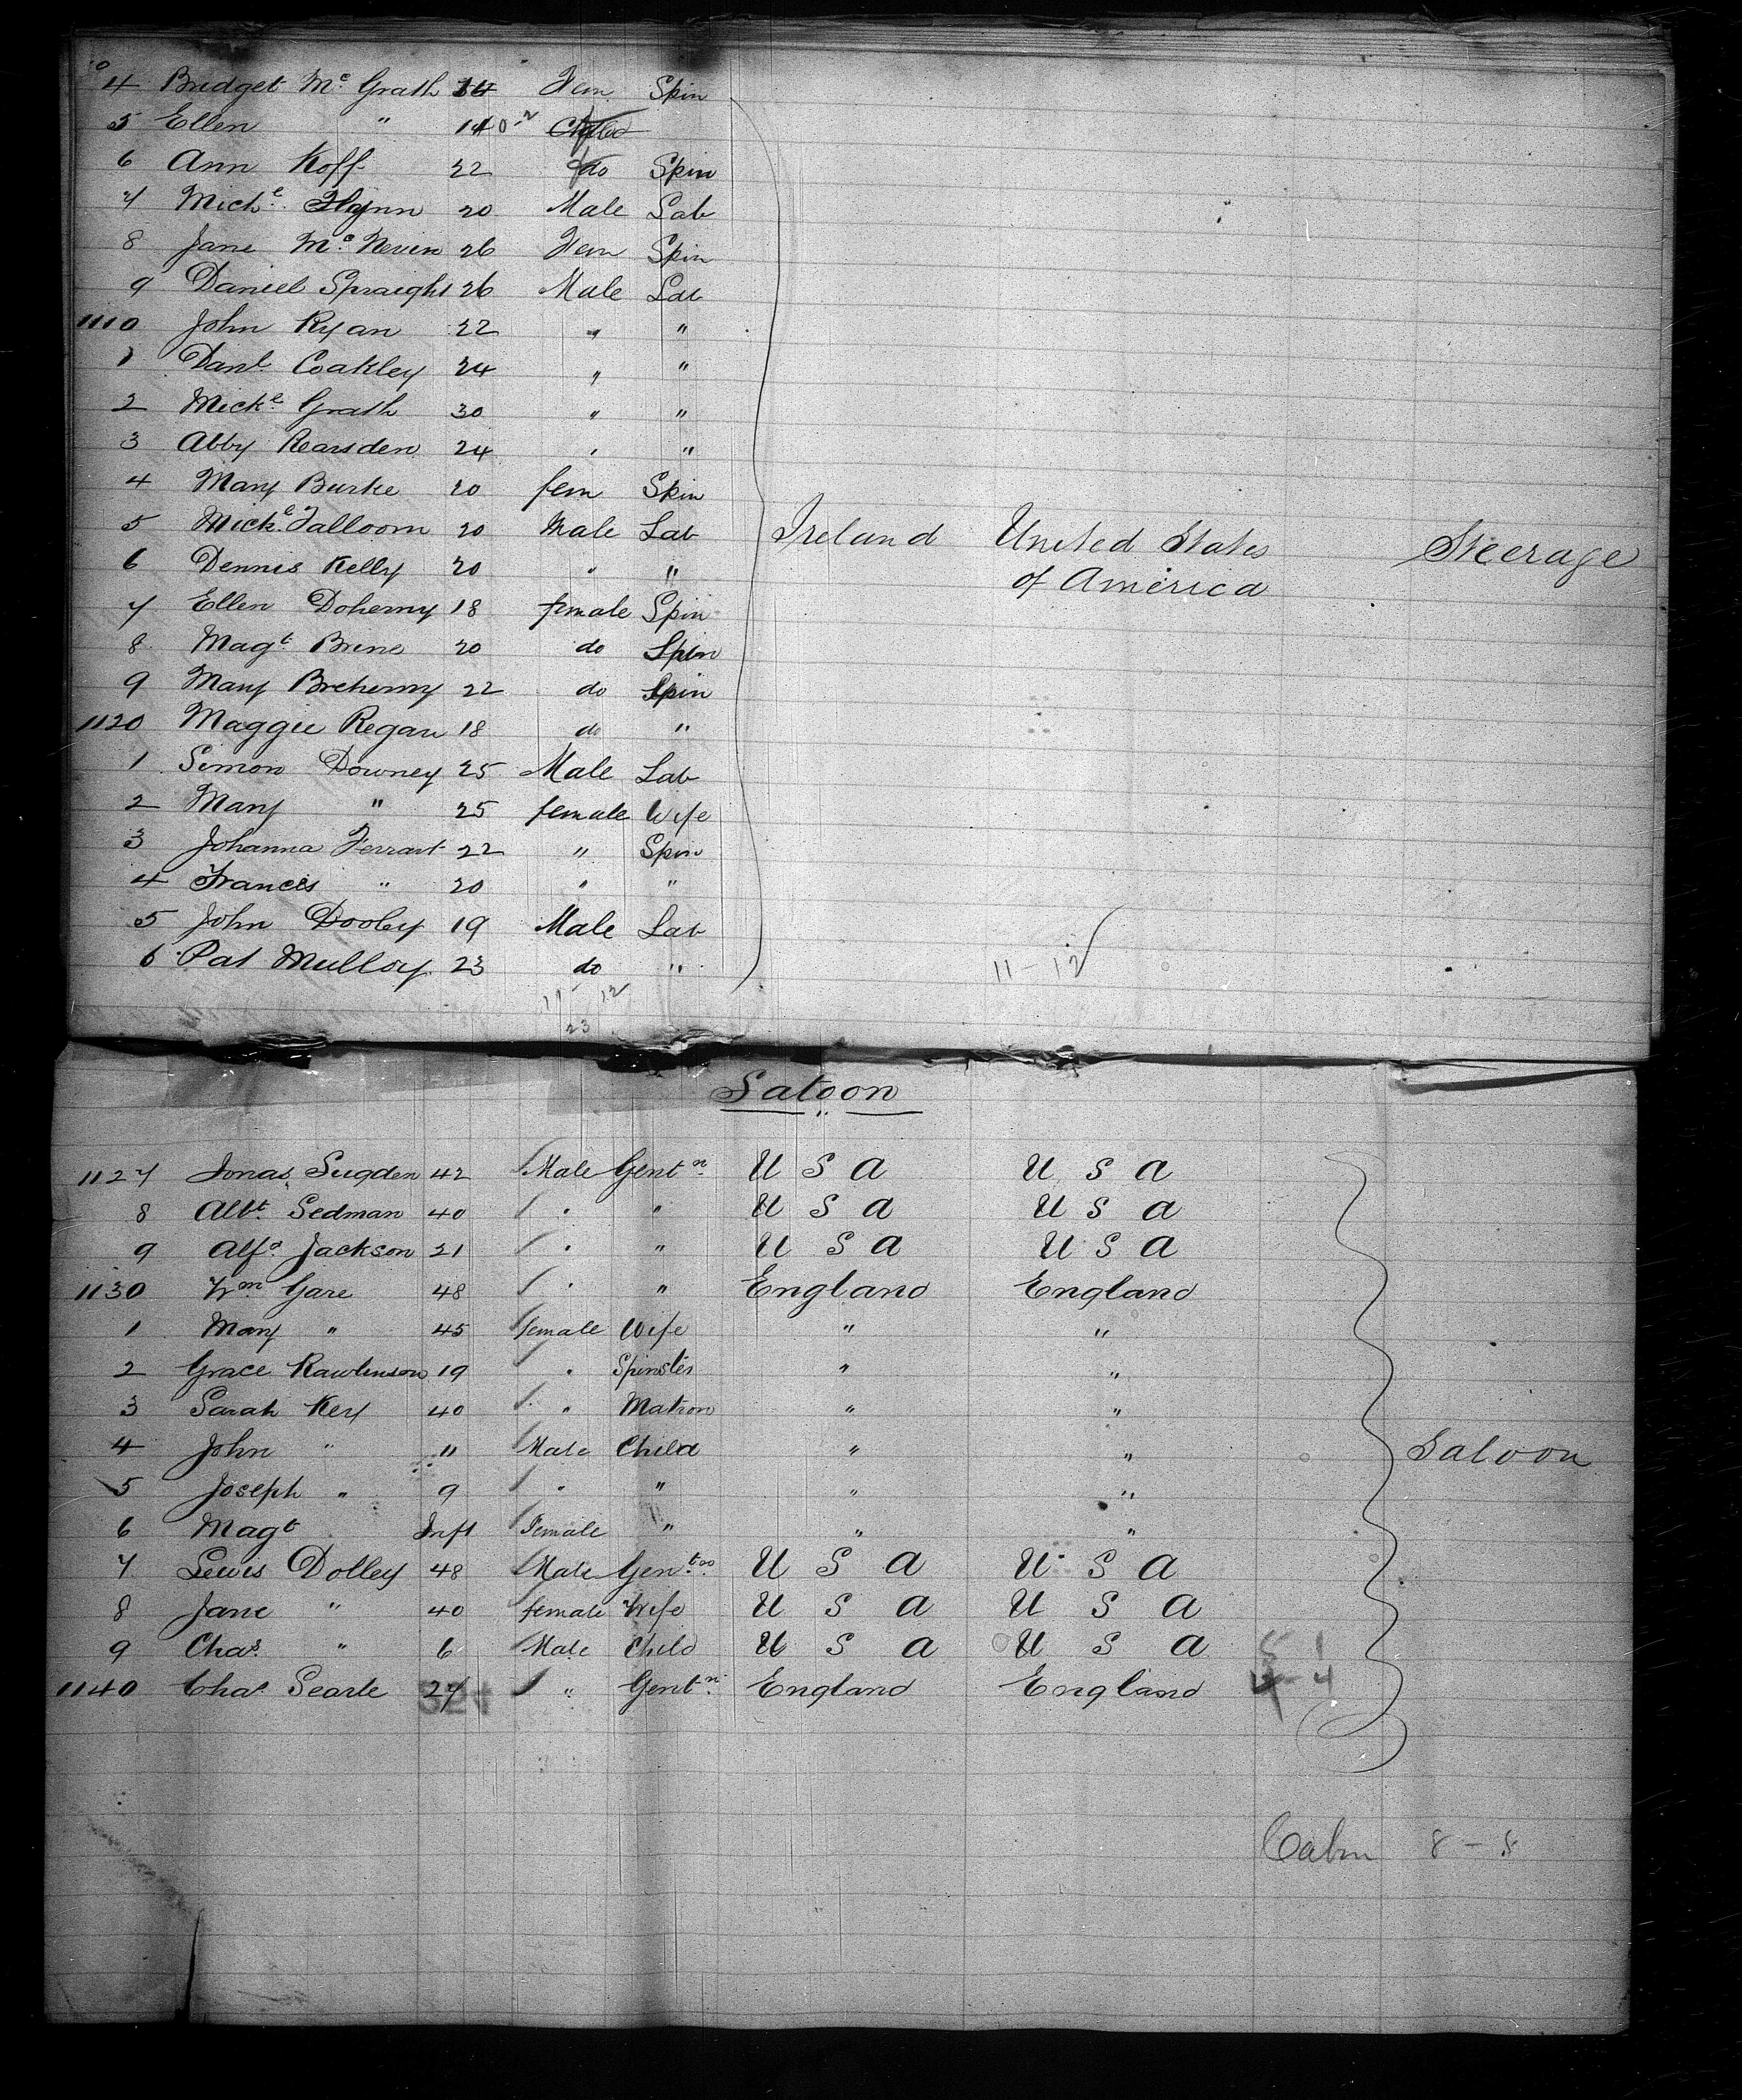 4 Bridget Mc Grath Fem Spin
5 Ellen " Child
6 Ann Koff 22 do Spin
7 Miche Flynn 20 Male Lab
8 Jane Mc Nevin 26 Fem Spin
9 Daniel Spraight 26 Male Lab
1110 John Ryan 22 " "
1 Danl Coakley 24 " "
2 Miche Grath 30 " "
3 Abby Rearsden 24 " "
4 Mary Burke 20 fem Spin
5 Miche Falloom 20 Male Lab Ireland United States Steerage
6 Dennis Kelly 20 " " of America
7 Ellen Doherny 18 female Spin
8 Magt Brine 20 do Spin
9 Mary Brehenny 22 do Spin
1120 Maggie Regan 18 do "
1 Simon Downey 25 Male Lab
2 Mary " 25 female Wife
3 Johanna Ferrart 22 " Spin
4 Francis " 20 " "
5 John Dooley 19 Male Lab
6 Pat Mulloy 23 do "
11 12
11 12
23
Saloon
1127 Jonas Sugden 42 Male Gentn U S A U S A
8 Albt Sedman 40 " " U S A U S A
9 Alfd Jackson 21 " " U S A U S A
1130 Wm Gare 48 " " England England
1 Mary " 45 female Wife " "
2 Grace Rawlinson 19 " Spinster " "
3 Sarah Key 40 " Matron " "
4 John " 11 Male Child " " Saloon
5 Joseph " 9 " " " "
6 Magt Inft Female " " "
7 Lewis Dolley 48 Male Gentn U S A U S A
8 Jane " 40 female Wife U S A U S A
9 Chas " 6 Male Child U S A U S A
1140 Chas Searle 27 " Gentn England England
Cabin 8 - 8